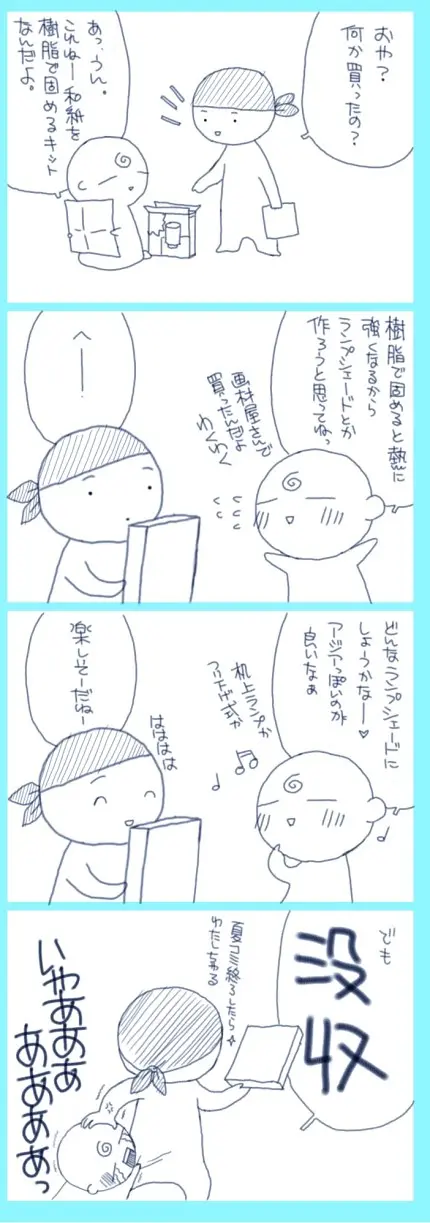 おや？
何か買ったの？
あっ、うん。
これねー和紙を
樹脂で固めるキット
なんだよ。
樹脂で固めると熱に
強くなるから
ランプシェードとか
作ろうと思ってねっ
画材屋さんで
買ったんだよ
わくわく
へー
どんなランプシェードに
しようかなー♥
アジアっぽいのが
良いなぁ
机上ランプか
つり下げ式か
楽しそーだねー
はははは
でも
没収
夏コミ終ったら
わたしちゃる
いやあああ
ああああっ